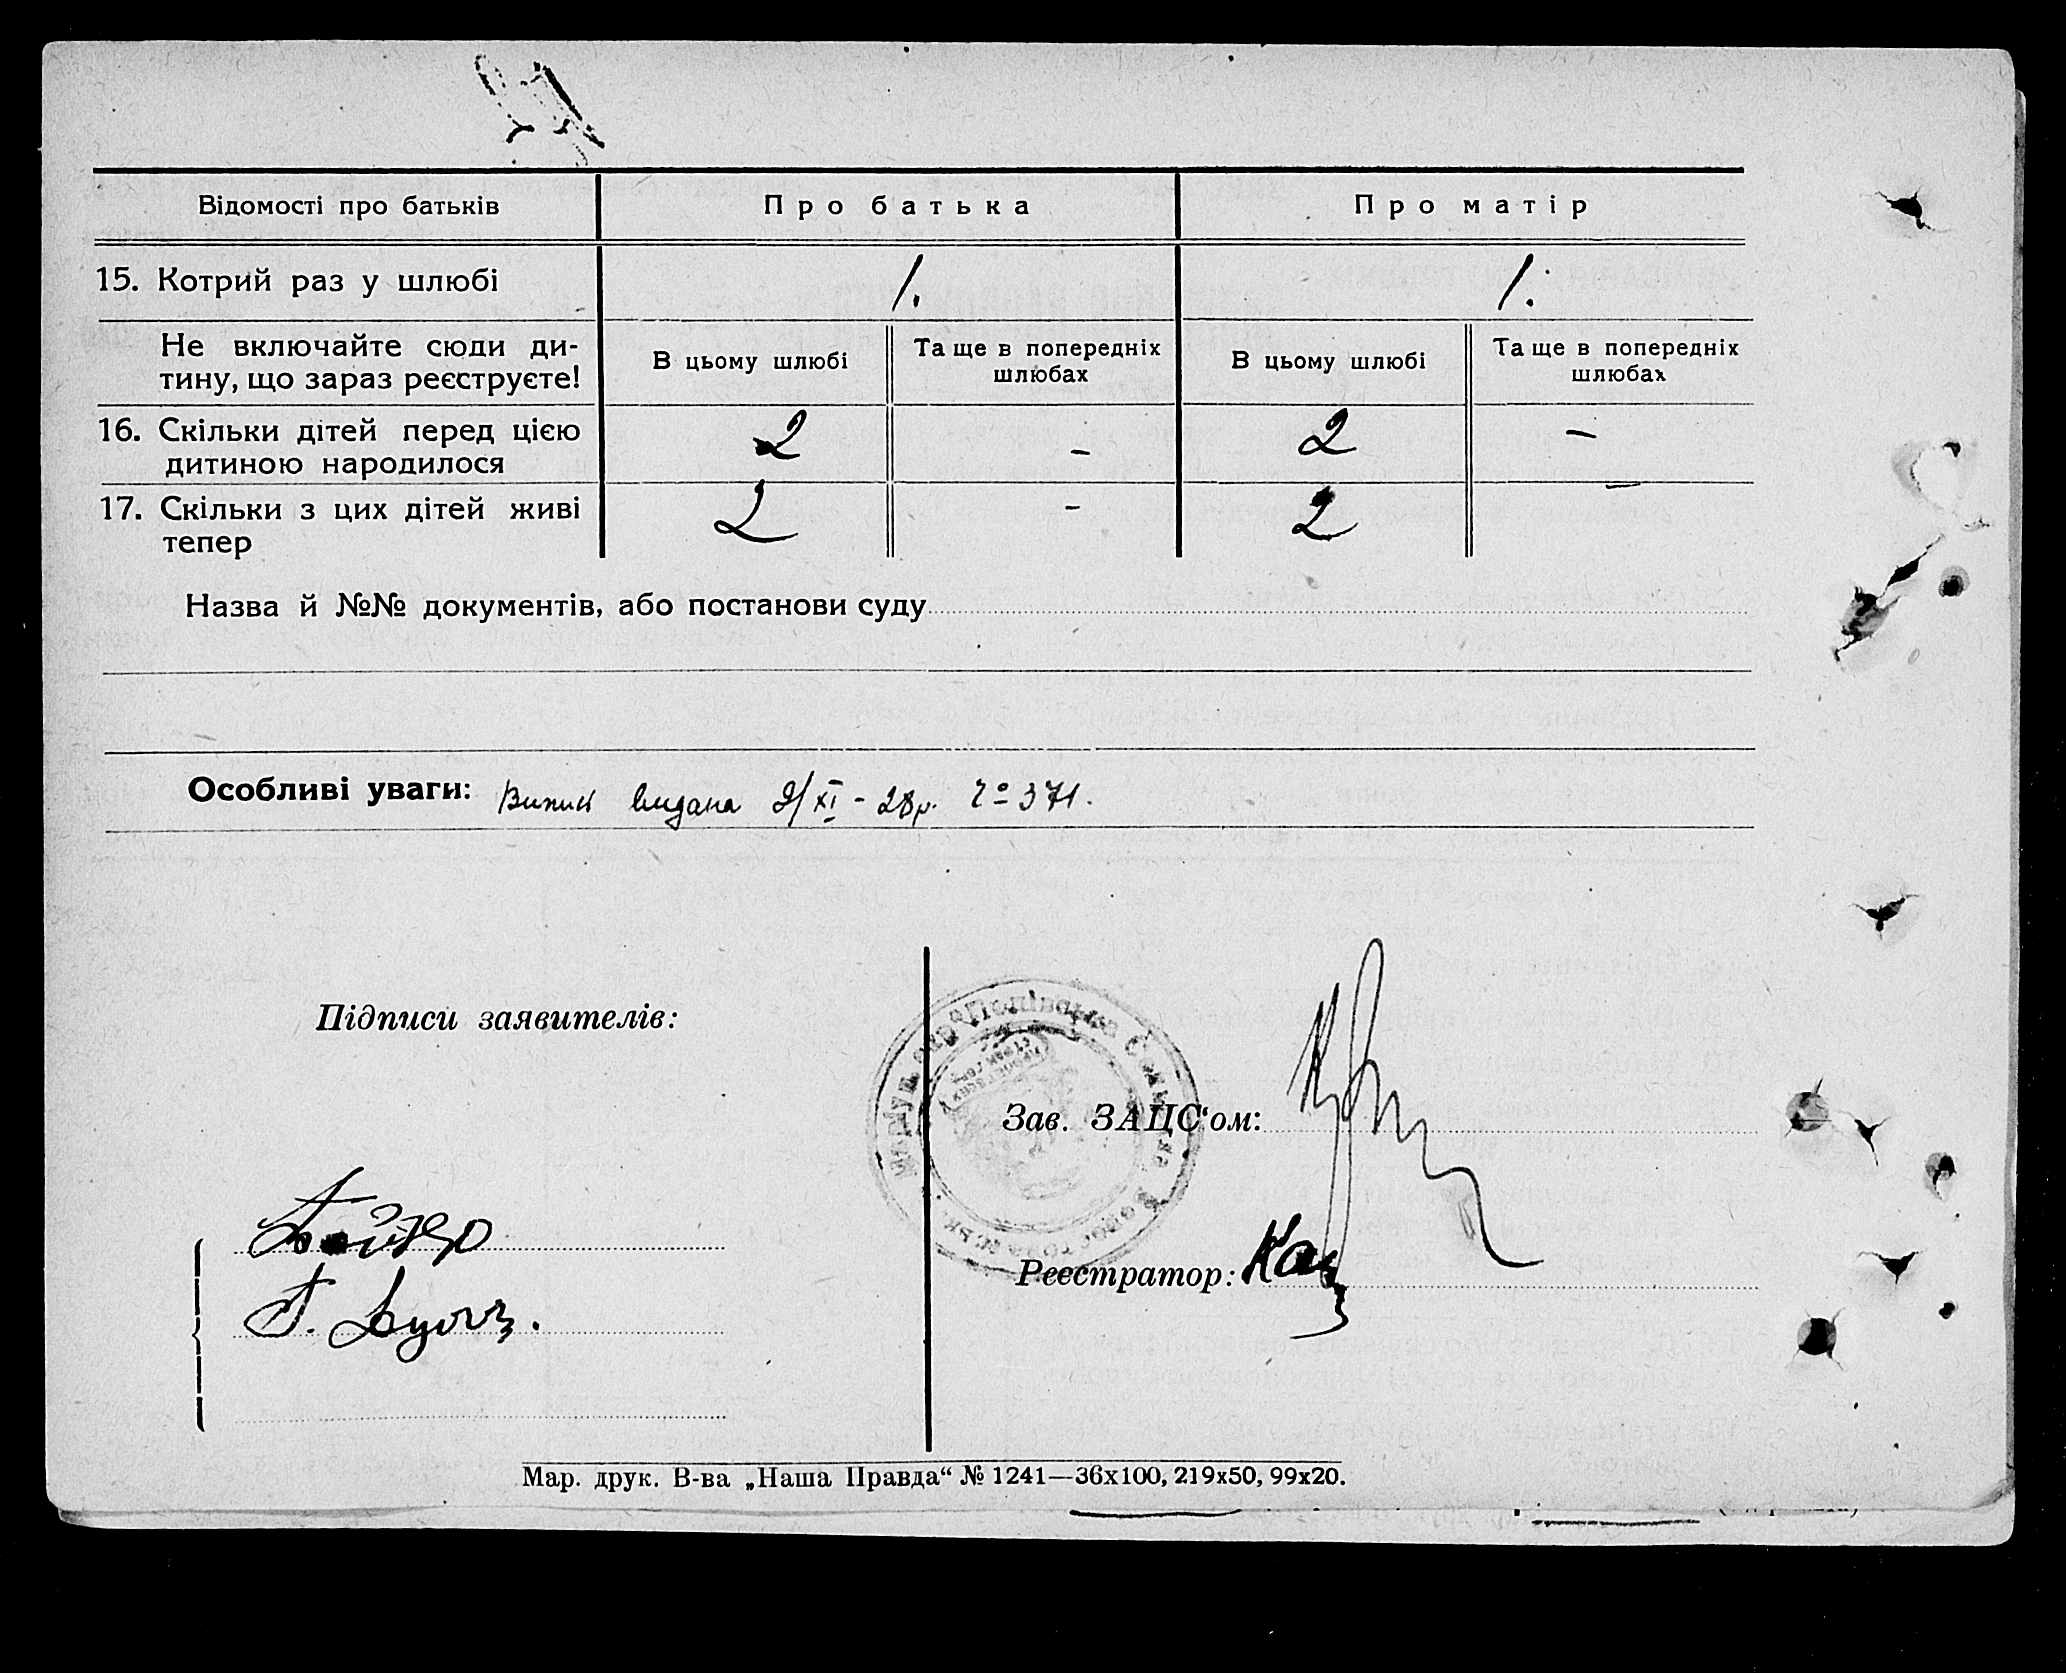 Відомості про батьків
Про батька
Про матір
15. Котрий раз у шлюбі
1.
1.
Не включайте сюди ди-
тину, що зараз реєструєте!
В цьому шлюбі
Та ще в попередніх
шлюбах
В цьому шлюбі
Та ще в попередніх
шлюбах
16. Скільки дітей перед цією
дитиною народилося
2
-
2
-
17. Скільки з цих дітей живі
тепер
2
-
2
-
Назва й №№ документів, або постанови суду
Особливі уваги: Випись видана 9/XI - 28р. № 371.
Підписи заявителів:
Зав. ЗАЦС'ом:
Реєстратор:
Мар. друк. В-ва „Наша Правда“ № 1241—36х100, 219х50, 99х20.